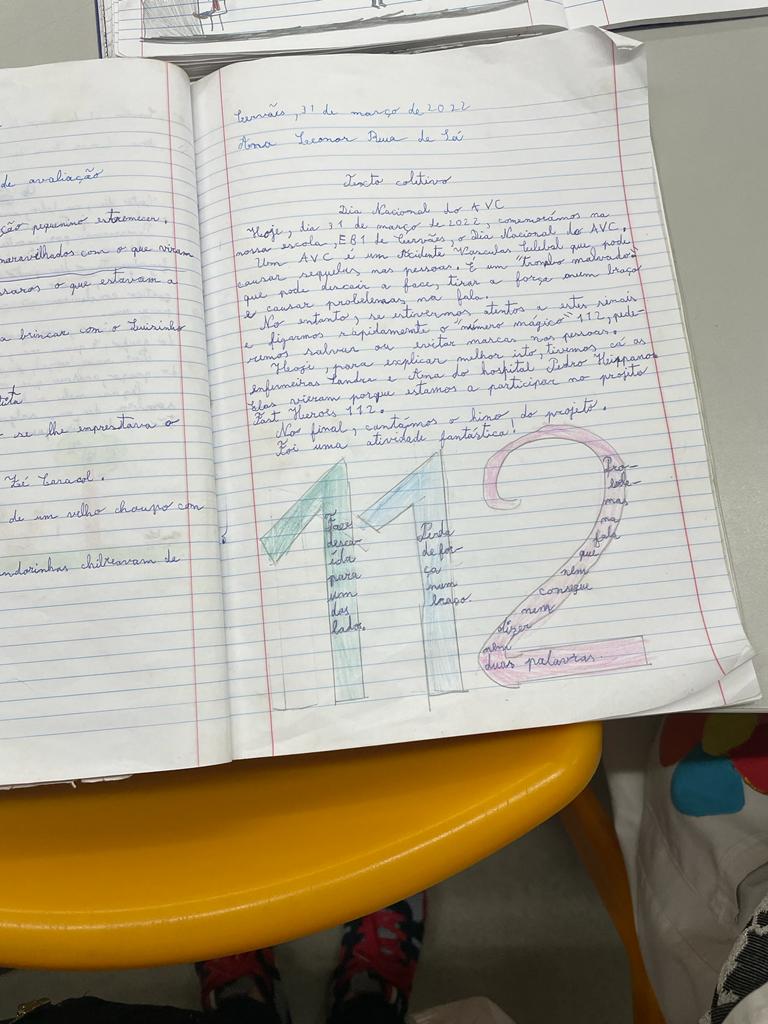 de avaliação
ção pequenino estremecer.
maravilhados com o que viram
ssaros o que estavam a
a brincar com o Luisinho
se lhe emprestava o
Zé Caracol.
de um velho choupo com
ndorinhas chilreavam de
Cervães, 31 de março de 2022
Ana Leonor Rua de Sá
Texto coletivo
Dia Nacional do AVC
Hoje, dia 31 de março de 2022, comemorámos na
nossa escola, EB1 de Cervães, o Dia Nacional do AVC.
Um AVC é um Acidente Vascular que pode
causar sequelas nas pessoas. É um "trombo malvado"
que pode descair a face, tirar a força num braço
e causar problemas na fala.
No entanto, se estivermos atentos a estes sinais
e ligarmos rapidamente o "número mágico" 112, pode-
remos salvar ou evitar marcas nas pessoas.
Hoje, para explicar melhor isto, tivemos cá as
enfermeiras Sandra e Ana do hospital Pedro Hispano.
Elas vieram porque estamos a participar no projeto
Fast Herois 112.
No final, cantámos o hino do projeto.
Foi uma atividade fantástica!
112
Face
desca-
ída
para
um
dos
lados.
Perda
de for-
ça
num
braço.
Pro-
ble-
mas
na
fala
que
nem
consegue
nem
dizer
nem
duas palavras.